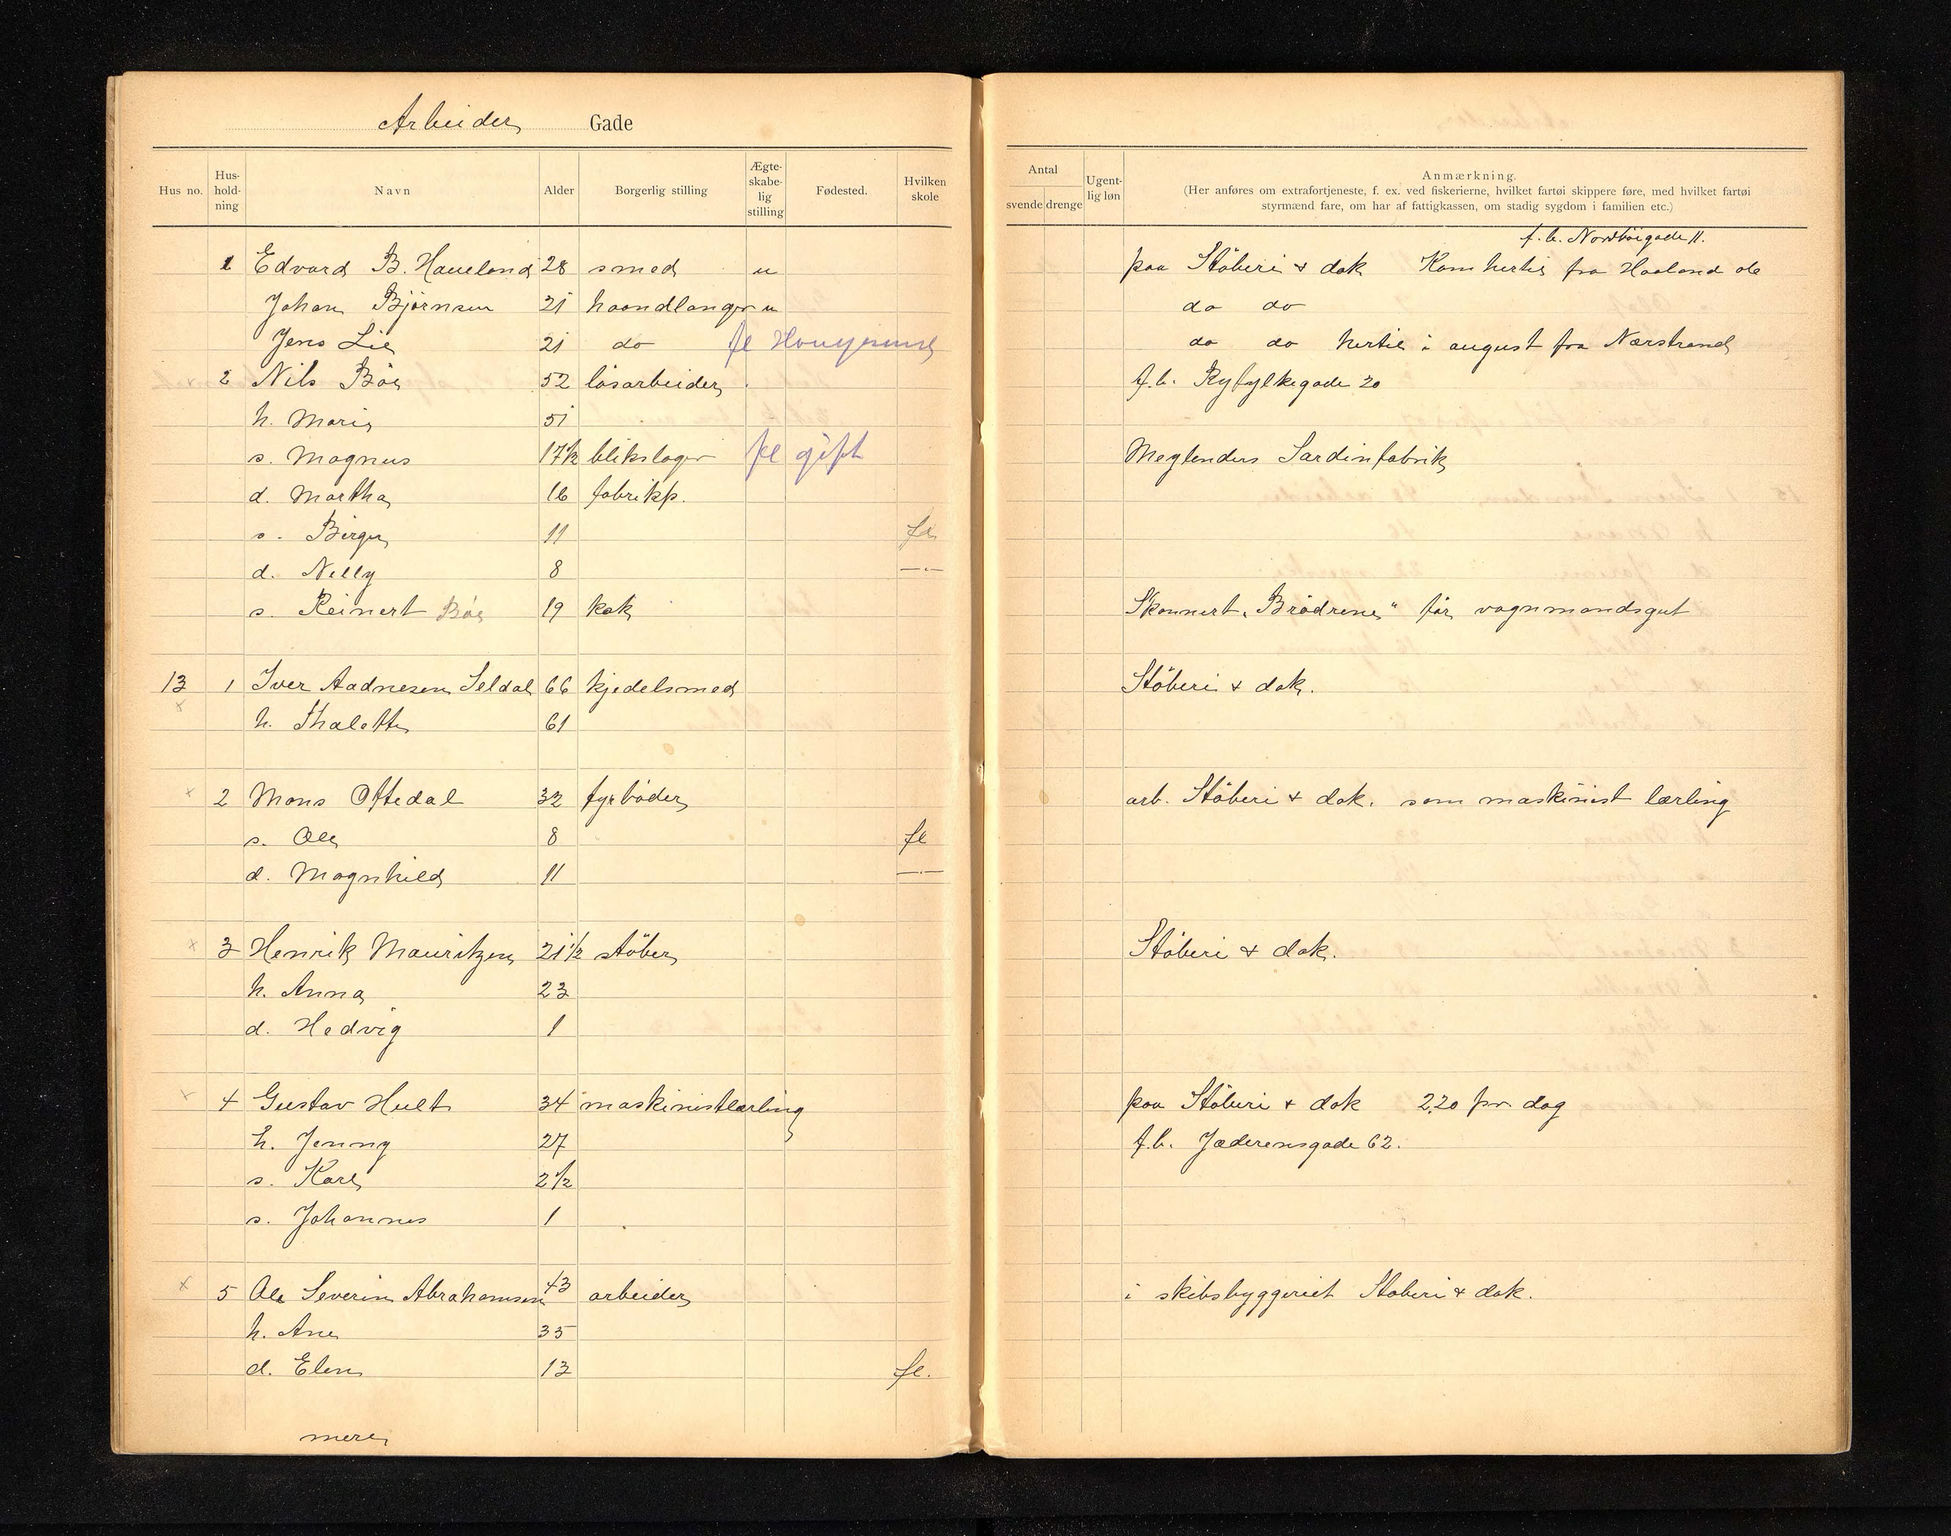 Arbeider Gade
Hus no. Hus-hold-ning Navn Alder Borgerlig stilling Ægte-skabe-lig stilling Fødested. Hvilken skole Antal svende drenge Ugent-lig løn Anmærkning.
(Her anføres om extrafortjeneste, f. ex. ved fiskerierne, hvilket fartøi skippere føre, med hvilket fartøi
styrmænd fare, om har af fattigkassen, om stadig sygdom i familien etc.)
f. b. Nordbögade 11.
1 Edvard B. Haueland 28 smed u paa Stöberi & dok Kom hertil fra Haaland
Johan Bjørnsen 21 haandlanger u do do
Jens Lie 21 do fl Haugesund do do hertil i august fra Nærstrand
2 Nils Böe 52 lösarbeider f.b. Ryfylkegade 20
h. Marie 51
s. Magnus 17½ blikslager fl gift Meglenders Sardinfabrik
d. Martha 16 fabrikp.
s. Birger 11 fl
d. Nelly 8 —〃—
s. Reinert Böe 19 kok Skonnert „Brödrene" för vognmandsgut
13 1 Iver Aadnesen Seldal 66 kjedelsmed Stöberi & dok.
x
h. Thalette 61
x 2 Mons Oftedal 32 fyrböder arb. Stöberi & dok. som maskinist lærling
s. Ole 8 fl
d. Magnhild 11 —〃—
x 3 Henrik Mauritzen 21½ stöber Stöberi & dok.
h. Anna 23
d. Hedvig 1
x 4 Gustav Hult 34 maskinistlærling paa Stöberi & dok 2,20 pr. dag
h. Jenny 27 f.b. Jæderensgade 62.
s. Karl 2½
s. Johannes 1
x 5 Ole Severin Abrahamsen 43 arbeider i skibsbyggeriet Stöberi & dok.
h. Ane 35
d. Elen 13 fl.
mere